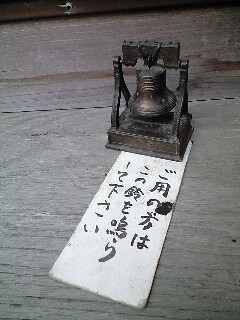 ご用の方は
この鈴を鳴ら
して下さい